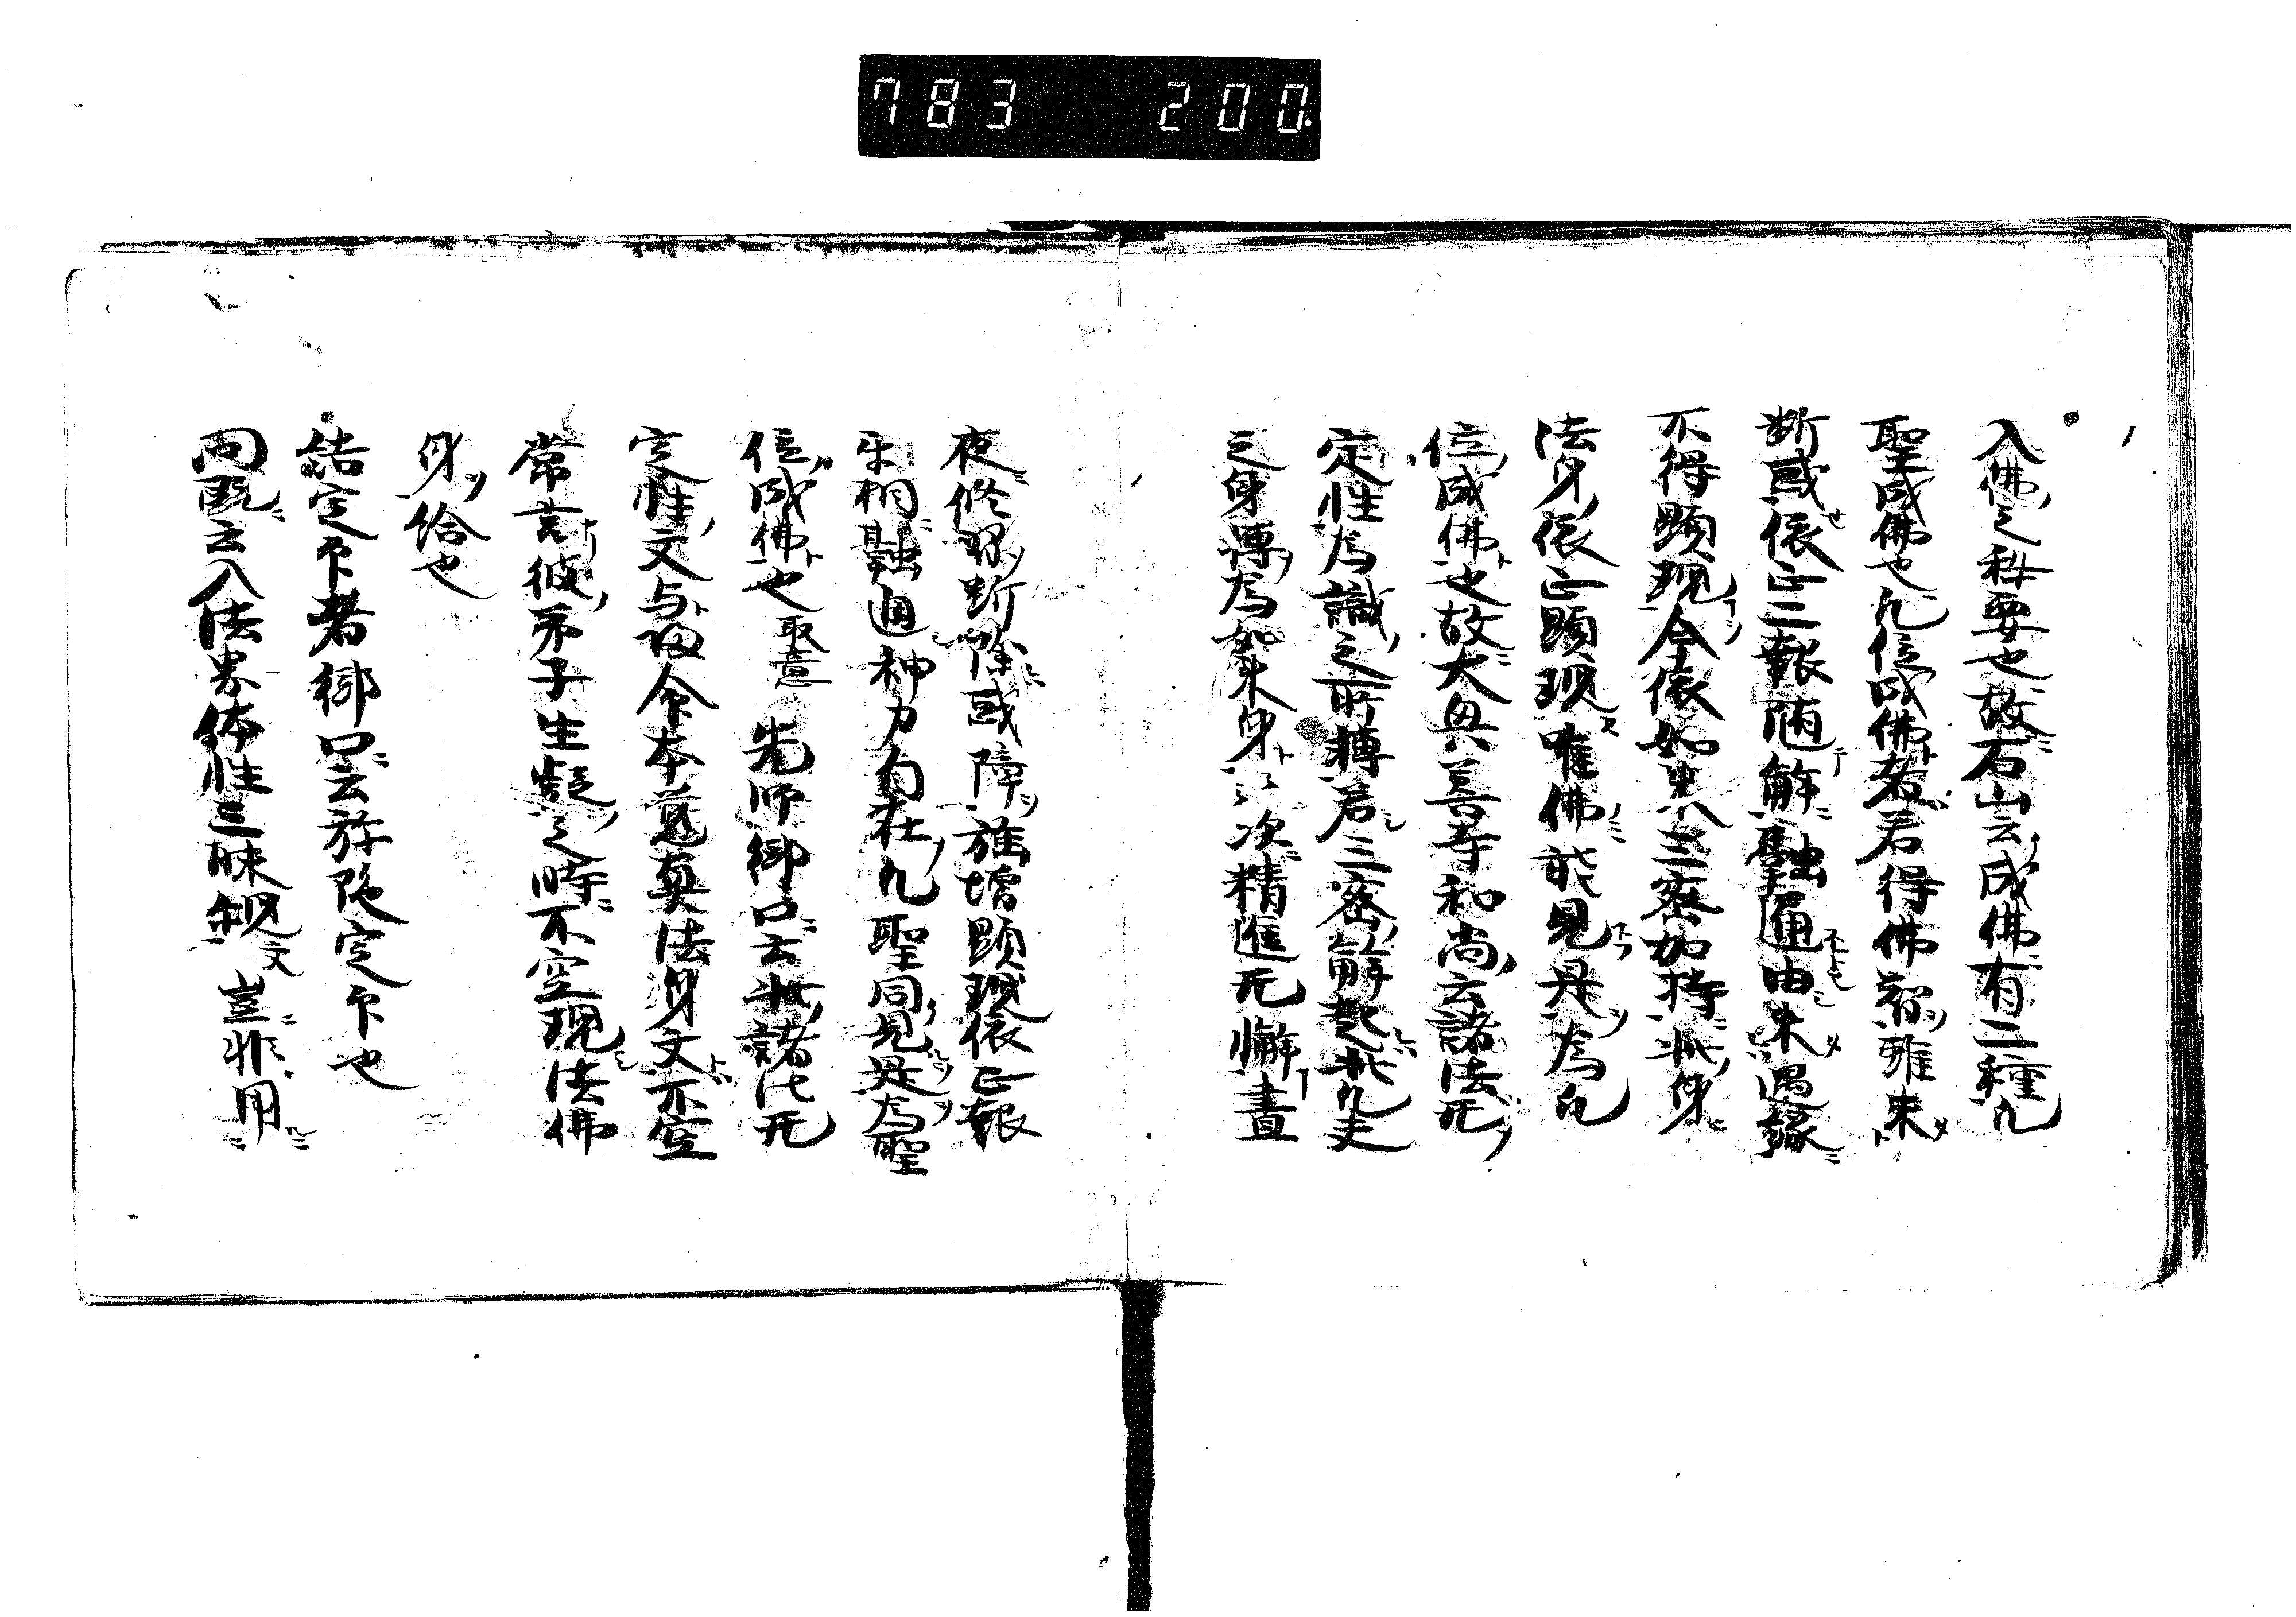 783 200.
入佛之秘要也故石山云成佛有二種凡
聖成佛也凡位成佛者若得佛智雖未
断惑依正二報随解融通由未遇縁
不得顕現今依如来三密加持此身
法身依正顕現唯佛能見是為凡
位成佛也故大興善寺和尚云諸法无
定性為識之所轉若三密解起此凡夫
之身轉為如来身云云次精進无懈晝
夜修習断除惑障旋増顕現依正報
牙相融通神力自在凡聖同見是為聖
位成佛也取意 先師御口云此諸法无
定性文与妙令本覺真法身文不空
常言彼弟子生疑之時不空現法佛
身給也
結定印者御口云弥陀定印也
問既云入法界体性三昧観文豈非用